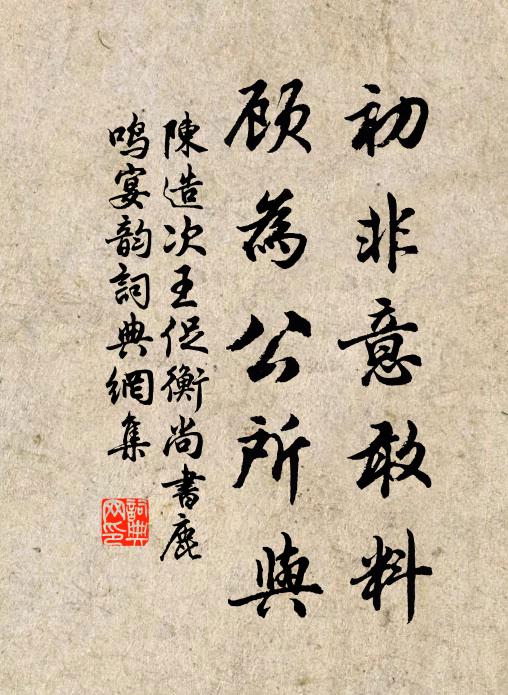 初非意敢料
顾為公所與
陳造次王促衡尚書鹿
鳴宴韵詞典網集
詞典
网印